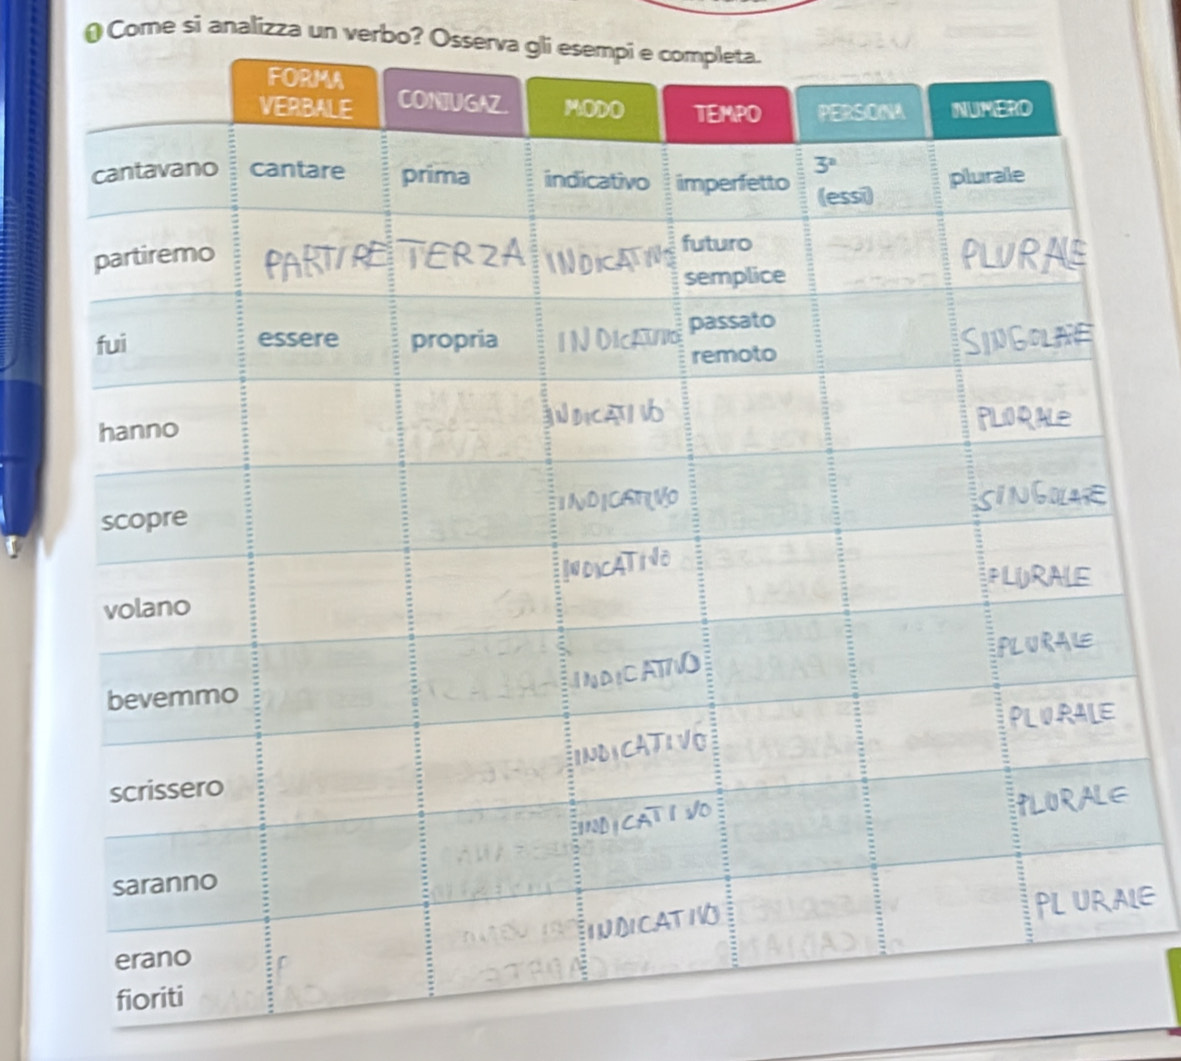 1 Come si analizza un verbo? Osserva gli esempi e completa.
FORMA VERBALE CONIUGAZ. MODO TEMPO PERSONA NUMERO
cantavano cantare prima indicativo imperfetto 3ª (essi) plurale
partiremo PARTIRE TERZA INDICATIVO futuro semplice PLURALE
fui essere propria INDICATIVO passato remoto SINGOLARE
hanno INDICATIVO PLORALE
scopre INDICATIVO SINGOLARE
volano INDICATIVO PLURALE
bevemmo INDICATIVO PLURALE
scrissero INDICATIVO PLURALE
saranno INDICATIVO PLORALE
erano fioriti P INDICATIVO PLURALE